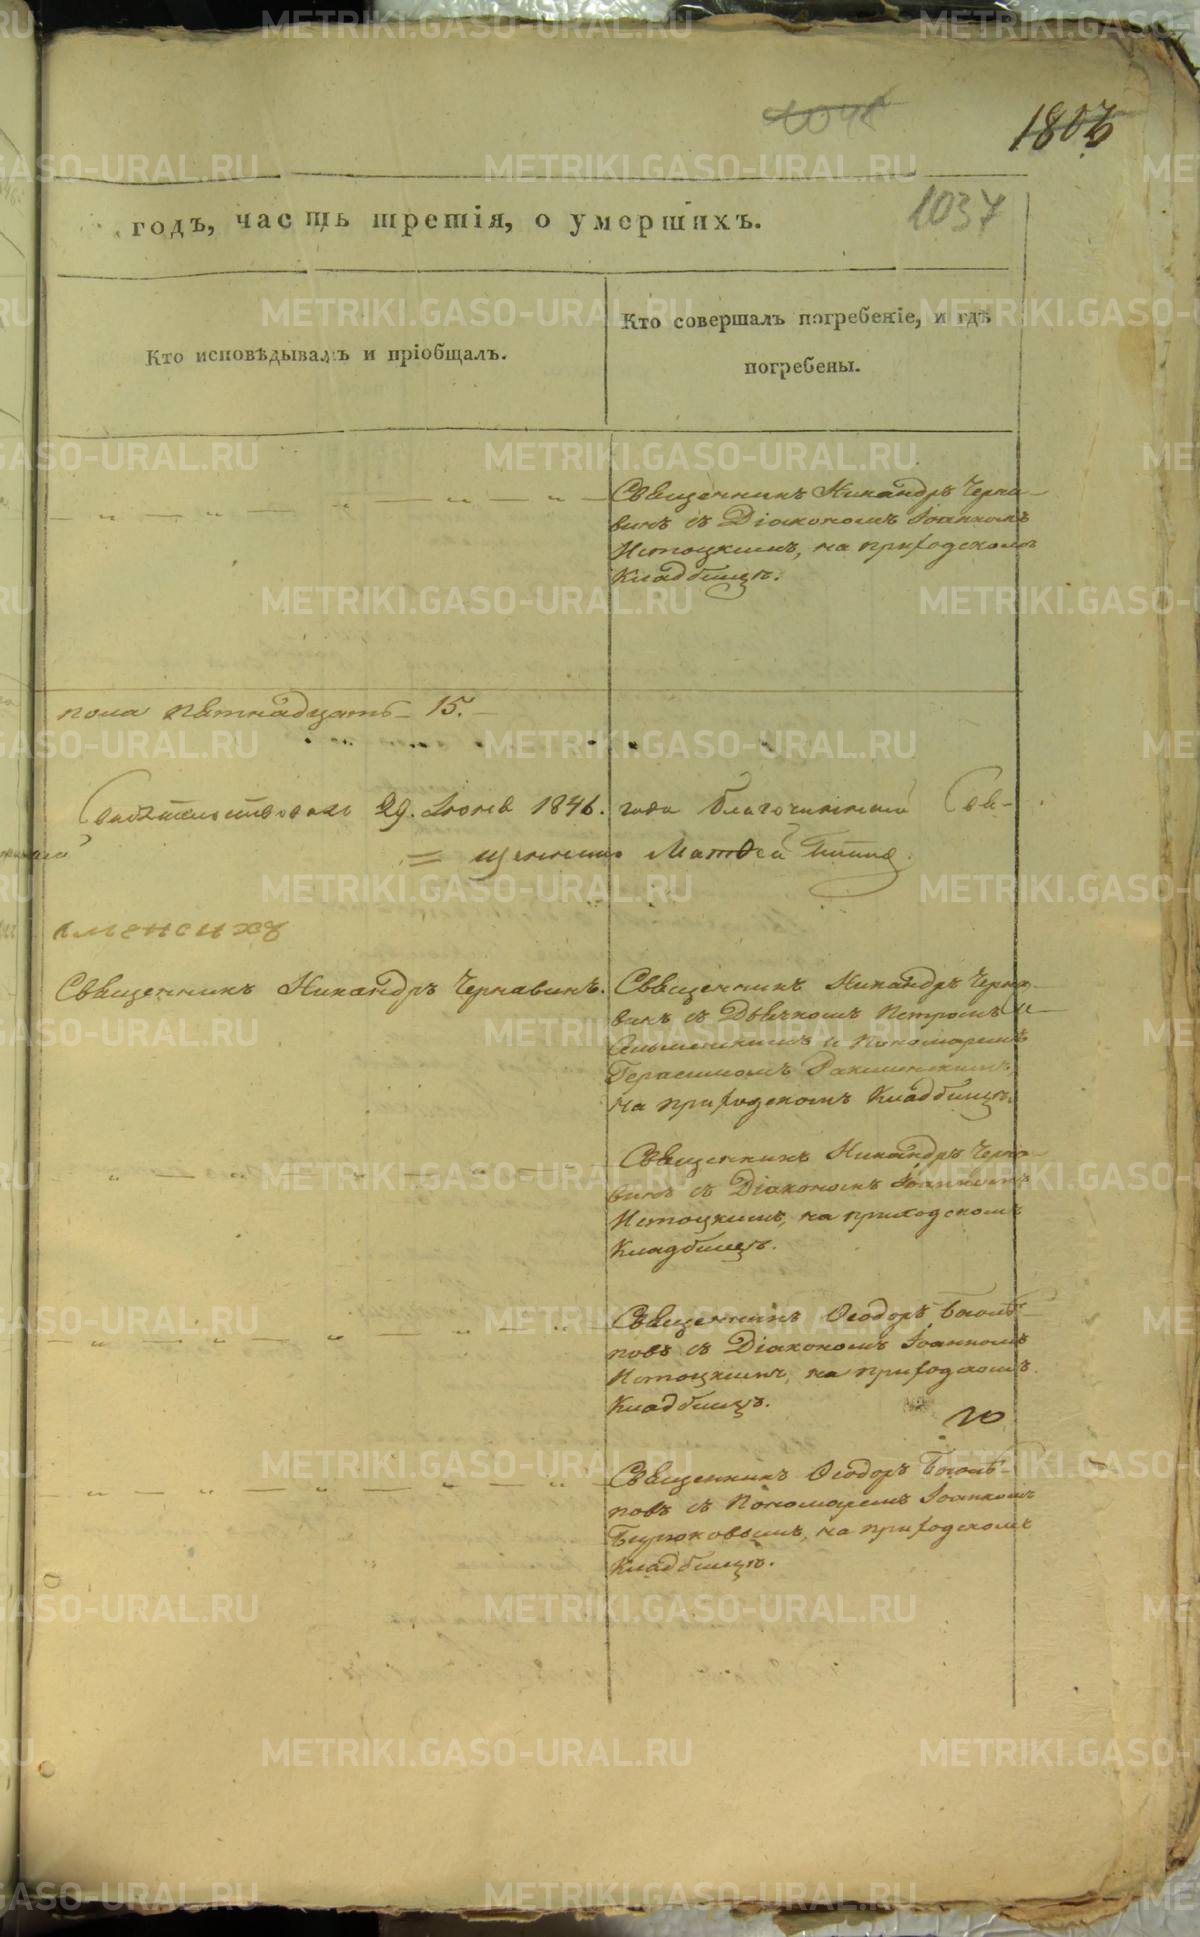 1807
1037
годъ, часть третія, о умершихъ.
Кто исповѣдывалъ и пріобщалъ.
Кто совершалъ погребеніе, и гдѣ
погребены.
Священникъ Никандръ Черна-
винъ съ Діакономъ Іоанномъ
Истоцкимъ, на приходскомъ
Кладбищѣ.
пола пятнадцать 15.
Свидѣтельствовалъ 29. Іюня 1846. года благочинный Свя-
щенникъ Матвей
Священникъ Никандръ Чернавинъ.
Священникъ Никандръ Черна-
винъ съ Дьячкомъ Петромъ
и Пономаремъ
Герасимомъ
на приходскомъ Кладбищѣ.
Священникъ Никандръ Черна-
винъ съ Діакономъ Іоанномъ
Истоцкимъ, на приходскомъ
Кладбищѣ.
Священникъ Ѳеодоръ Боголѣ-
повъ съ Діакономъ Іоанномъ
Истоцкимъ, на приходскомъ
Кладбищѣ.
Священникъ Ѳеодоръ Боголѣ-
повъ съ Пономаремъ Іоанномъ
Бирюковымъ, на приходскомъ
Кладбищѣ.
METRIKI.GASO-URAL.RU